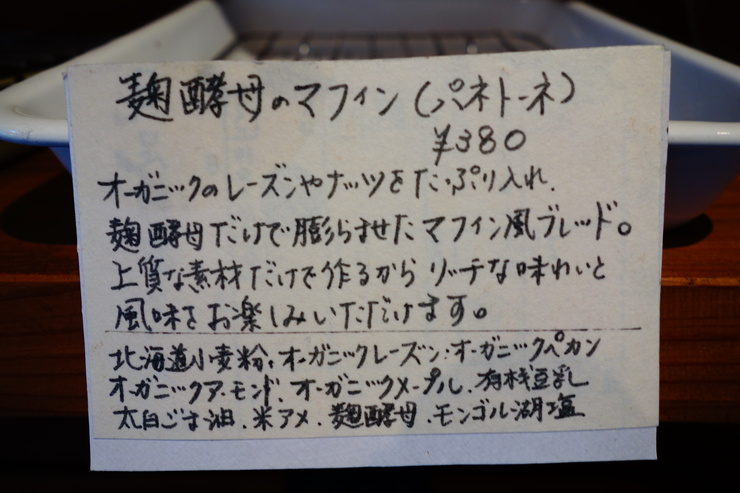 麹酵母のマフィン(パネトーネ)
¥380
オーガニックのレーズンやナッツをたっぷり入れ、
麹酵母だけで膨らませたマフィン風ブレッド。
上質な素材だけで作るからリッチな味わいと
風味をお楽しみいただけます。
北海道小麦粉、オーガニックレーズン・オーガニックペカン
オーガニックアーモンド、オーガニックメープル、有機豆乳
太白ごま油、米アメ、麹酵母、モンゴル湖塩